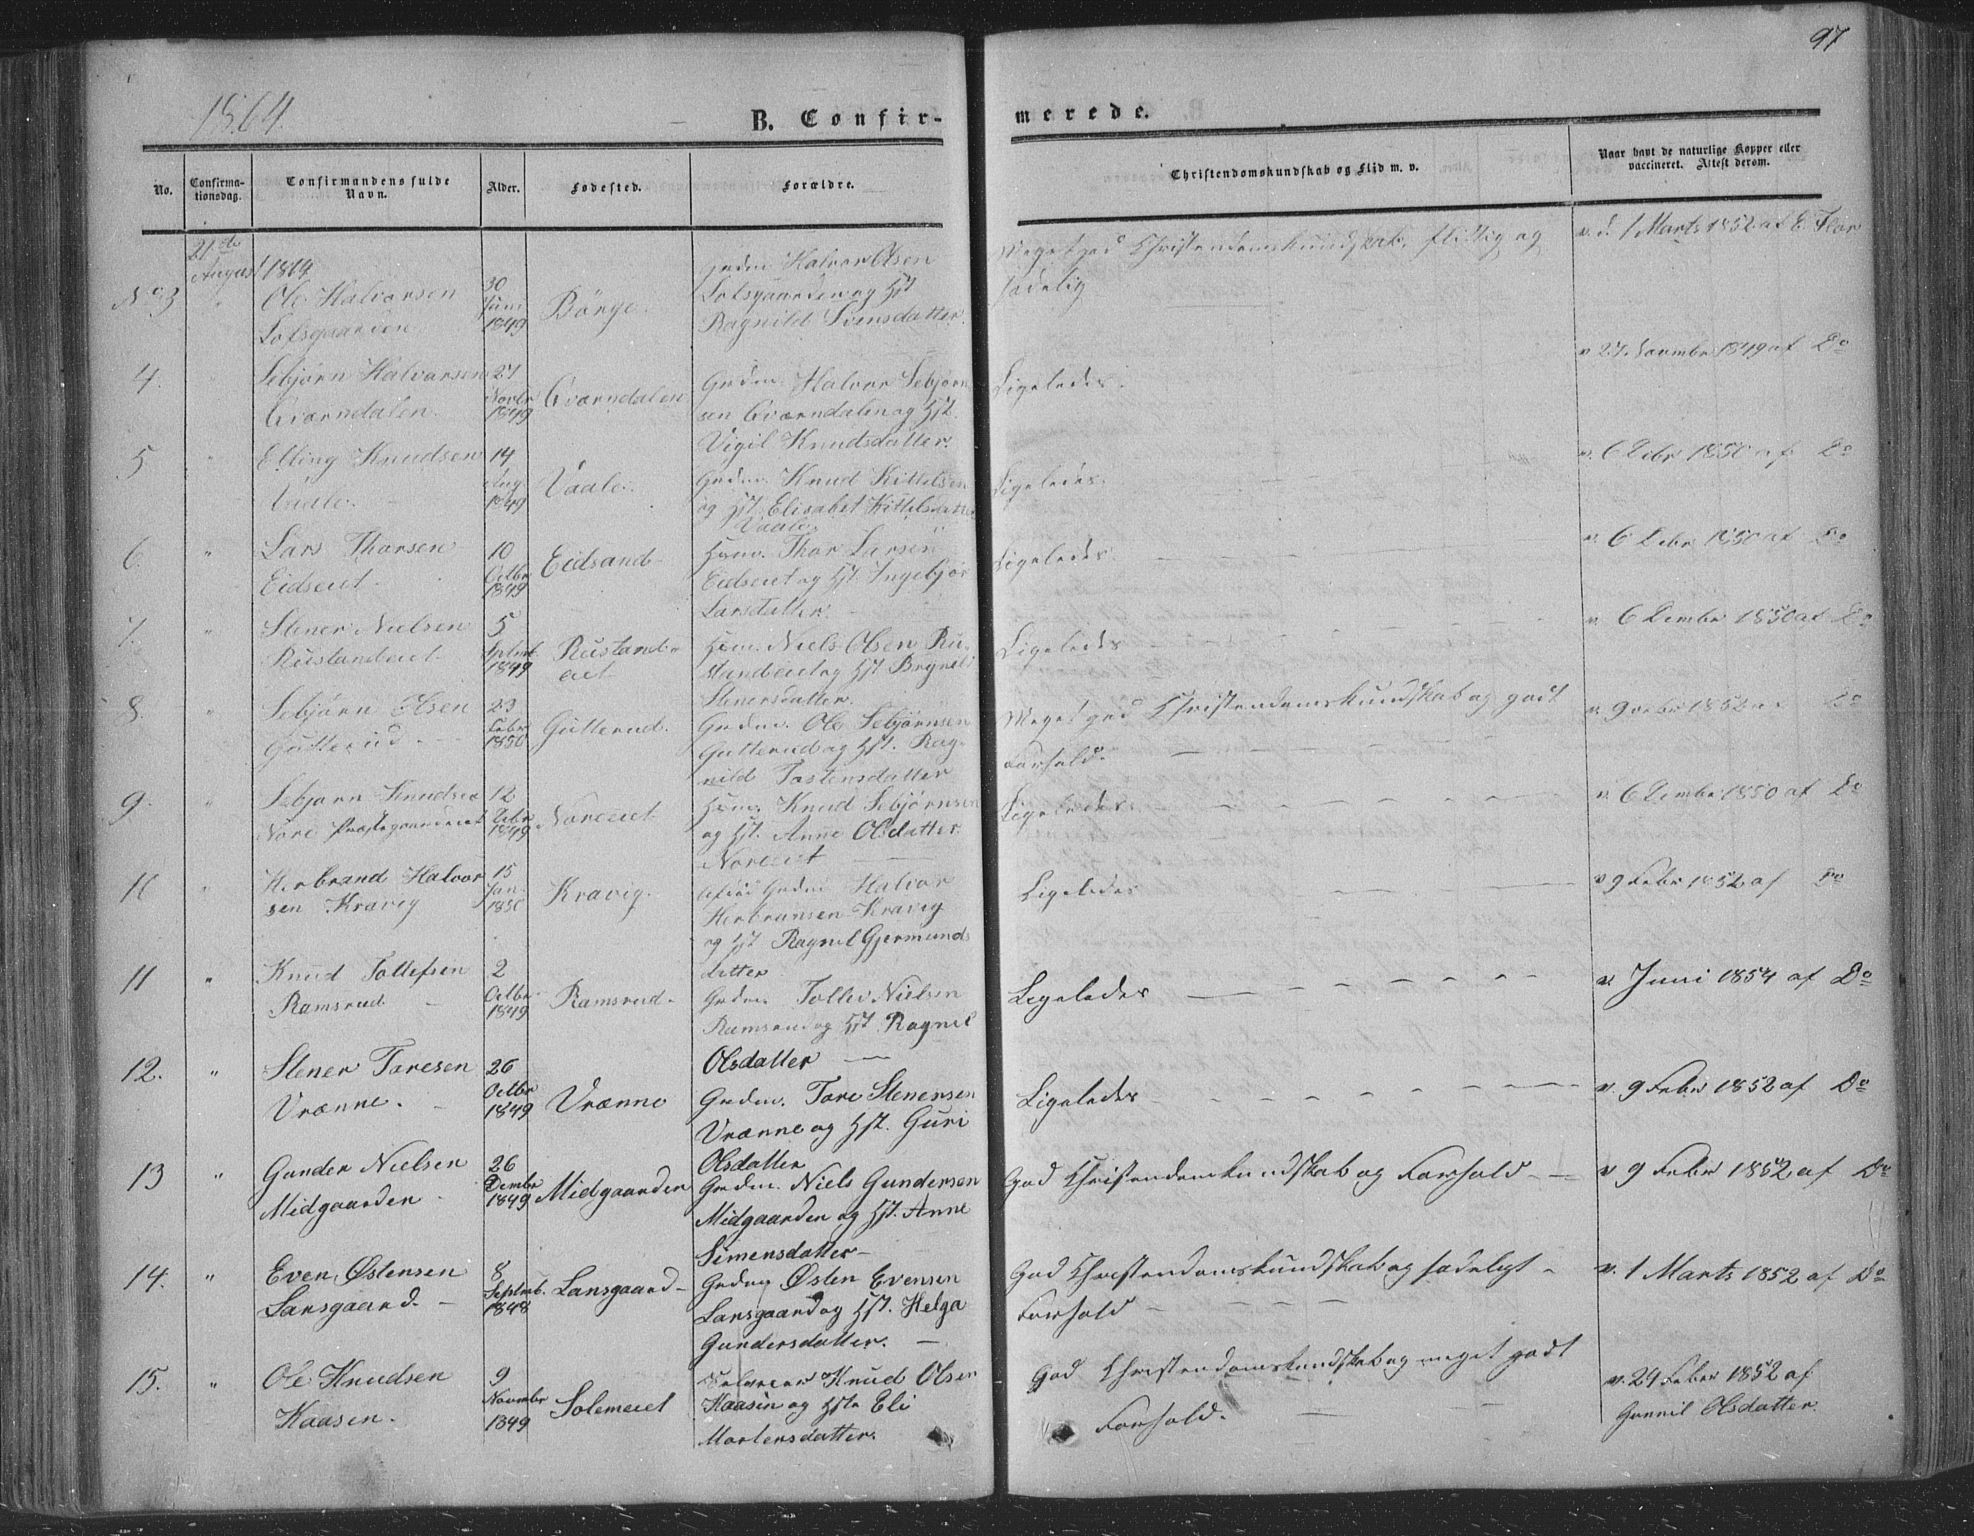 97
1864
B. Confirmerede.
No.
Confirmationsdag.
Confirmandens fulde Navn.
Alder.
Fødested.
Forældre.
Christendomskundskab og Flid m. v.
Naar havt de naturlige Kopper eller vaccineret. Attest derom.
21de August
No 3 Ole Halvorsen 30 Juni 1849 Börge. Halvor Olsen og Hst Ragnild Svensdatter. Meget god Christendomskundskab, flittig og sædelig v. d. 1 Marts 1852 af E. Flor
4. " Sebjörn Halvorsen Qværndalen. 27 Novbr 1849 Qværndalen Grdm. Halvor Sebjörnsen Qværndalen og Hst. Vigil Knudsdatter. Ligeledes. v. 27 Novmbr 1849 af Do
5 " Elling Knudsen Vaale 14 Aug 1849 Vaale. Grdm. Knud Kittelsen og Hst. Elisabet Vaale. Ligeledes. v. 6 Debr 1850 af Do
6. " Lars Thorsen Eidseiet. 10 Octbr 1849 Eidsand Husm. Thor Larsen Eidseiet og Hst. Ingebjör Larsdatter. Ligeledes. v. 6 Debr 1850 af Do
7. " Stener Nielsen Rustandeiet 5 Septmb. 1849 Rustandeiet Husm. Niels Olsen Rustandeiet og Hst Stenersdatter. Ligeledes v. 6 Dembr 1850 af Do
8. " Sebjörn Olsen Gulterud 23 Febr 1850 Gulterud. Grdm. Ole Sebjörnsen Gulterud og Hst. Ragnild Tostensdatter Meget god Christendomskundskab og godt Forhold. v. 9 Febr 1852 af Do
9. " Sebjörn Knudsen Nore Præstegaardeiet 12 1849 Noreeiet. Husm. Knud Sebjörnsen og Hst. Anne Olsdatter Noreeiet Ligeledes. v. 6 Dembr 1850 af Do
10 " Herbrand Halvorsen Kravig 15 Jan. 1850 Kravig. Grdm. Halvor Herbransen Kravig og Hst Ragnil Gjermundsdatter Ligeledes v 9 Febr 1852 af Do
11 " Knud Tollefsen Ramsrud 2 Octbr. 1849 Ramsrud Grdm. Tollev Nielsen Ramsrud og Hst. Ragnil Olsdatter Ligeledes v Juni 1854 af Do
12. " Stener Toresen Vrænne. 26 Octbr 1849 Vrænne Grdm. Tore Stenersen Vrænne og Hst. Guri Olsdatter Ligeledes v. 9 Febr 1852 af Do
13 " Gunder Nielsen Midgaarden 26 Dembr 1849 Midgaarden Grdm. Niels Gundersen Midgaarden og Hst. Anne Simensdatter God Christendomskundskab og Forhold v 9 Febr 1852 af Do
14. " Even Østensen Lansgaard. 8 Septmb. 1848 Lansgaard Grdm Østen Evensen Lansgaard og Hst. Helga Gundersdatter. God Christendomskundskab og sædeligt Forhold v. 1 Marts 1852 af Do
15. " Ole Knudsen Kaasen. 9 Novmbr 1849 Solemeiet Knud Olsen Kaasin og Hst Eli Mortensdatter. God Christendomskundskab og meget godt Forhold. v. 24 Febr 1852 af Gunnil Olsdatter.